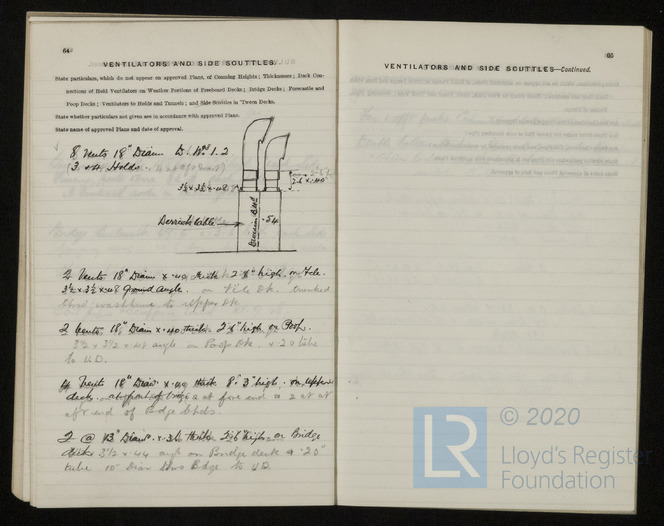 64
VENTILATORS AND SIDE SCUTTLES.
State particulars, which do not appear on approved Plans, of Coaming Heights; Thicknesses; Deck Con-
nections of Hold Ventilators on Weather Portions of Freeboard Decks; Bridge Decks; Forecastle and
Poop Decks; Ventilators to Holds and Tunnels; and Side Scuttles in 'Tween Decks.
State whether particulars not given are in accordance with approved Plans.
State name of approved Plans and date of approval.
8 Vents 18" Diam 1.2
3 Holds.
2'6 x .40
3½ x 3½ x .48
Derrick table
.54
2 Vents 18" Diam x .40 thick 2'6" high. on Fcle.
3½ x 3½ x .48 Ground angle. on Dk. trunked
thro to upper Dk
2 Vents 18" Diam x .40 thick 2'6" high on Poop.
3½ x 3½ x .48 angle on Poop Dk. x .20 tube
to U.D.
4 Vents 18" Diam x .40 thick 8'3" high. on upper
deck. 2 at fore end & 2 at
aft end of Bdge
2 @ 13" Diam x .36 thick 2'6 high on Bridge
deck 3½ x .44 angle on Bridge deck & .20"
tube 10" Diam thro Bdge to UD
65
VENTILATORS AND SIDE SCUTTLES—Continued.
© 2020
LR
Lloyd's Register
Foundation